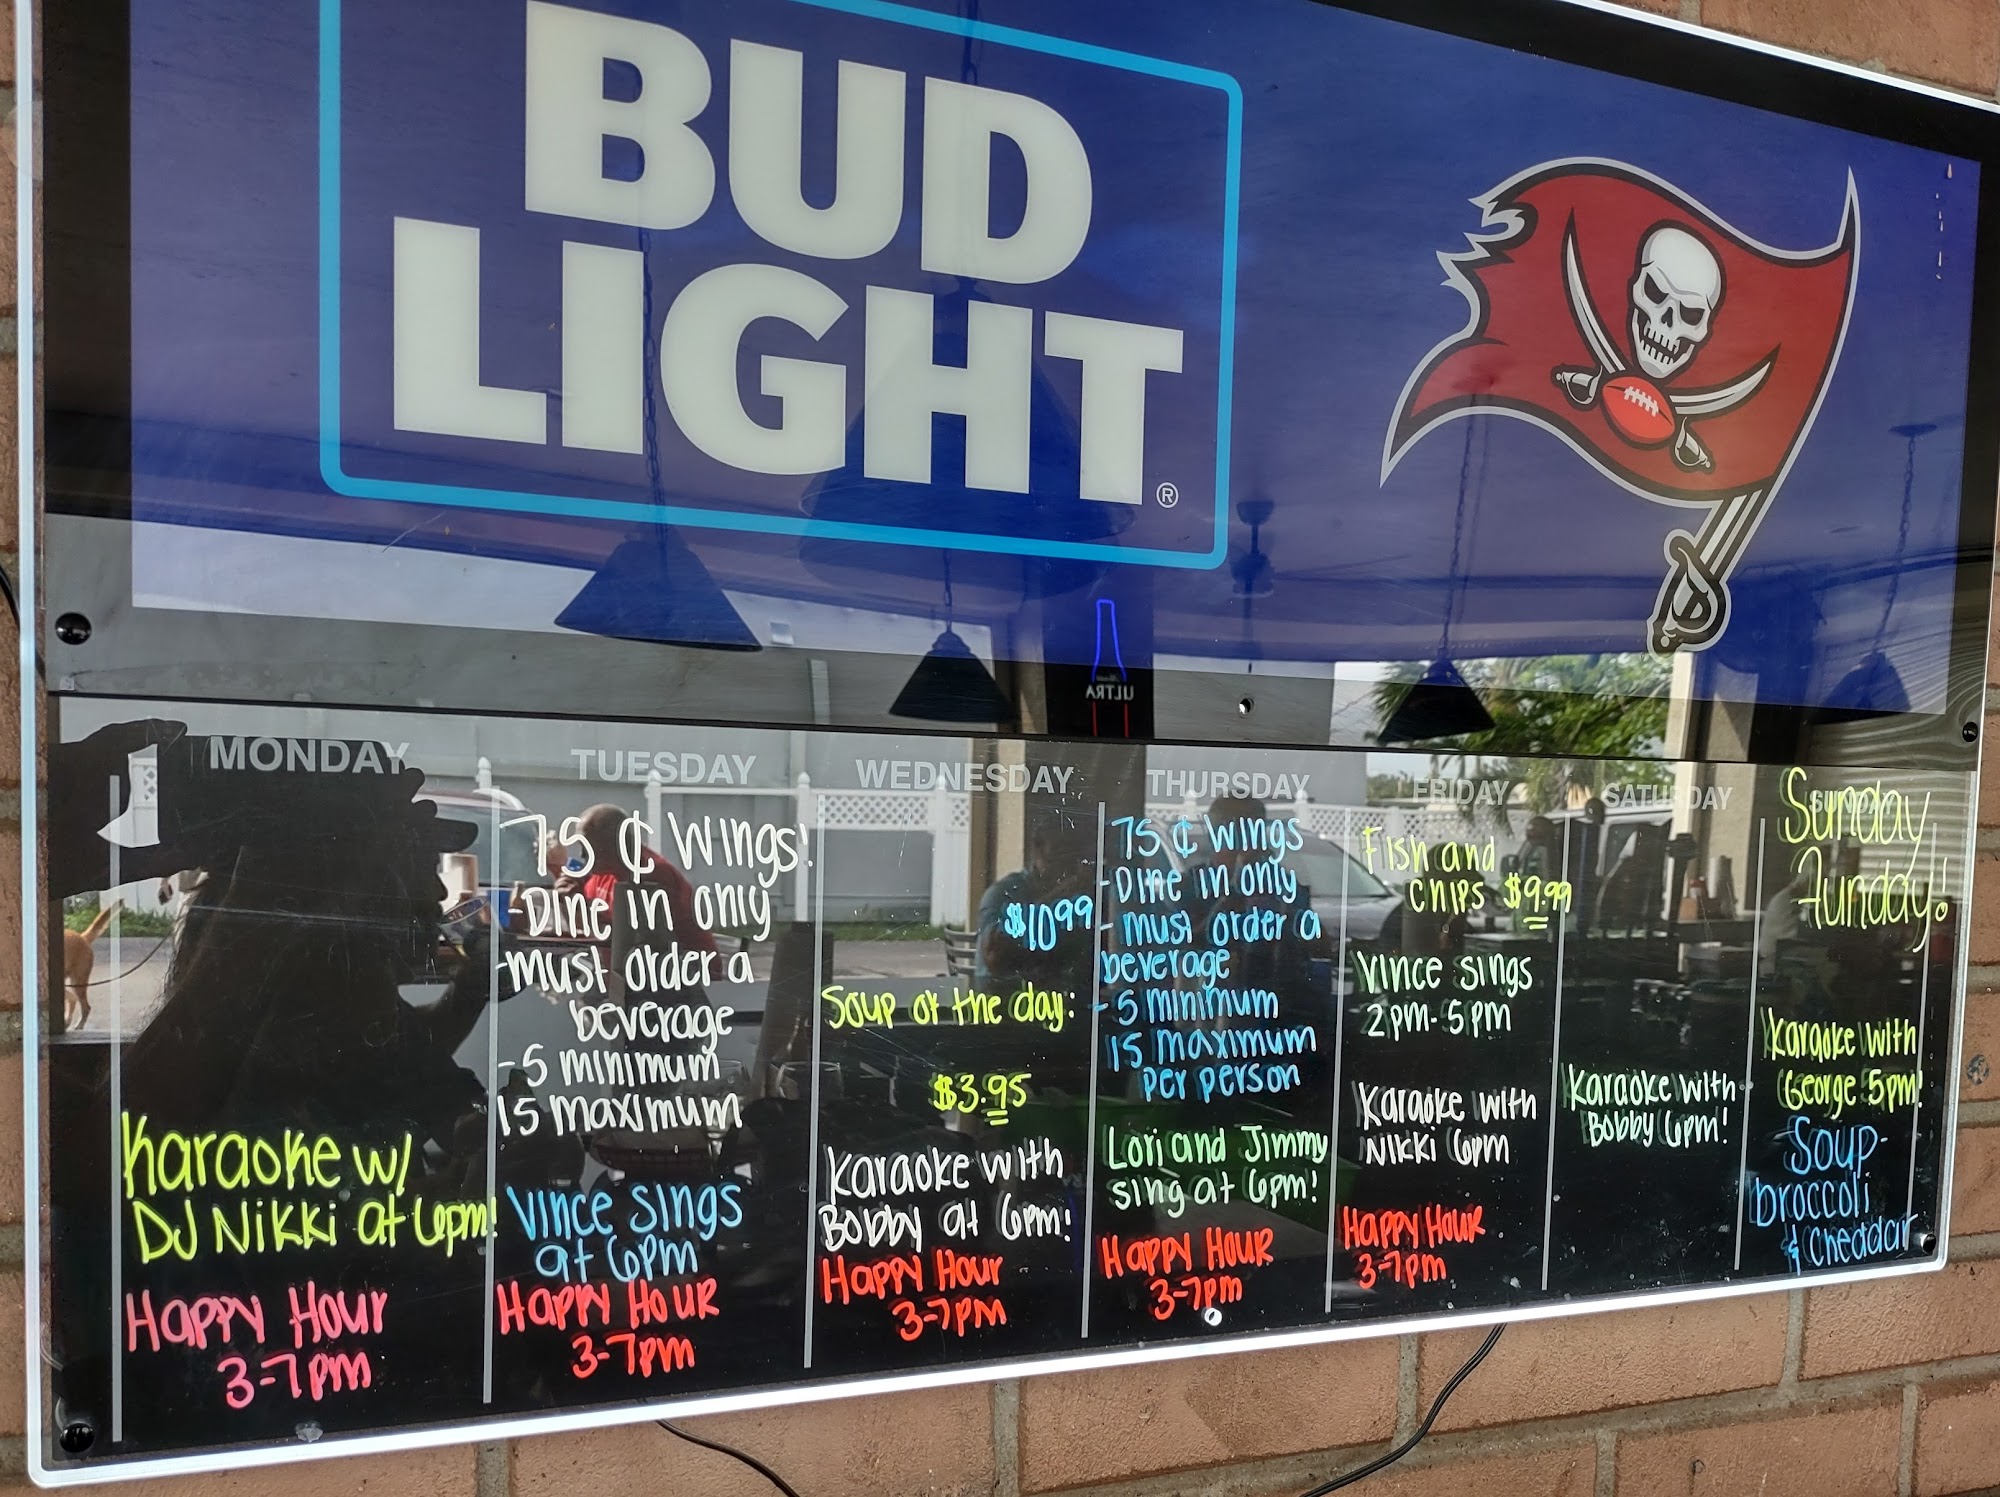 BUD
LIGHT
®
ULTRA
MONDAY
Karaoke w/
DJ Nikki at 6pm!
Happy Hour
3-7pm
TUESDAY
75 ¢ Wings!
-Dine in only
-must order a
beverage
-5 minimum
15 maximum
Vince sings
at 6pm
Happy Hour
3-7pm
WEDNESDAY
$10.99
Soup of the day:
$3.95
Karaoke with
Bobby at 6pm!
Happy Hour
3-7pm
THURSDAY
75 ¢ Wings
-Dine in only
- must order a
beverage
- 5 minimum
15 maximum
per person
Lori and Jimmy
sing at 6pm!
Happy Hour
3-7pm
FRIDAY
Fish and
Chips $9.99
Vince sings
2pm-5pm
Karaoke with
Nikki 6pm
Happy Hour
3-7pm
SATURDAY
Karaoke with
Bobby 6pm!
SUNDAY
Sunday
Funday!
Karaoke with
George 5pm!
Soup-
broccoli
& cheddar